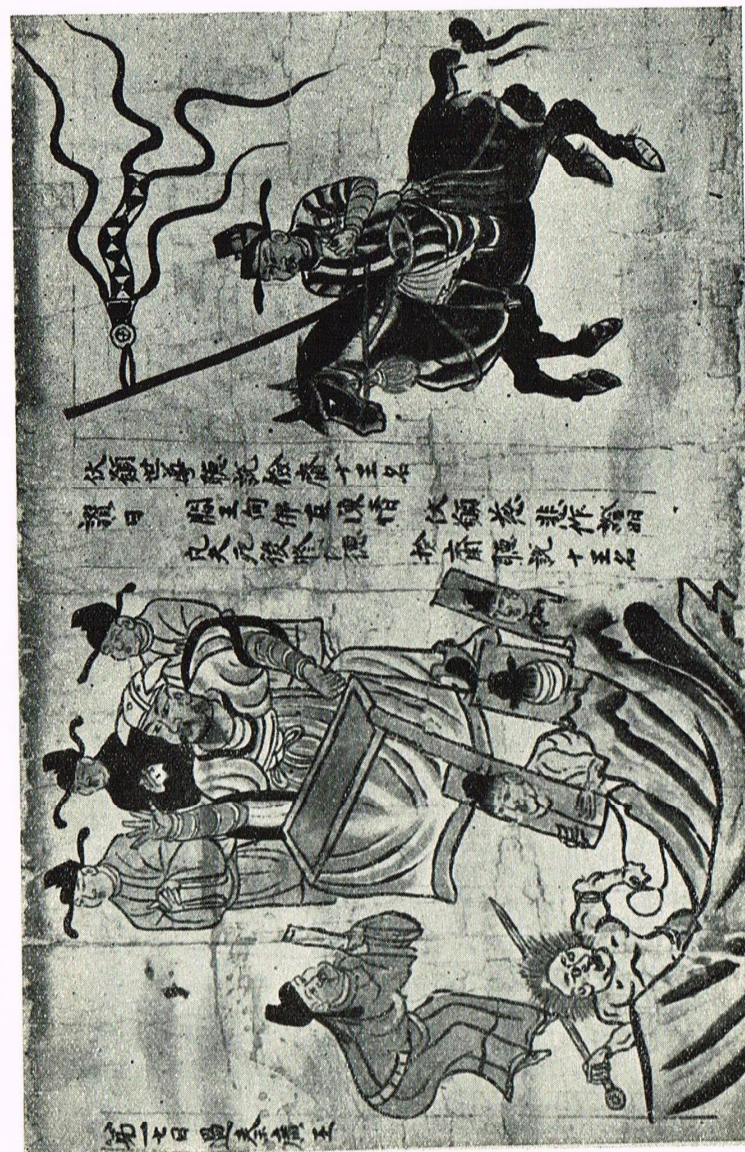 伏願世尊聽說檢齋十王名
讚曰 閻王向佛再陳情 伏願慈悲作證明
凡夫死後脩功德 檢齋聽說十王名
第一七日過秦廣王